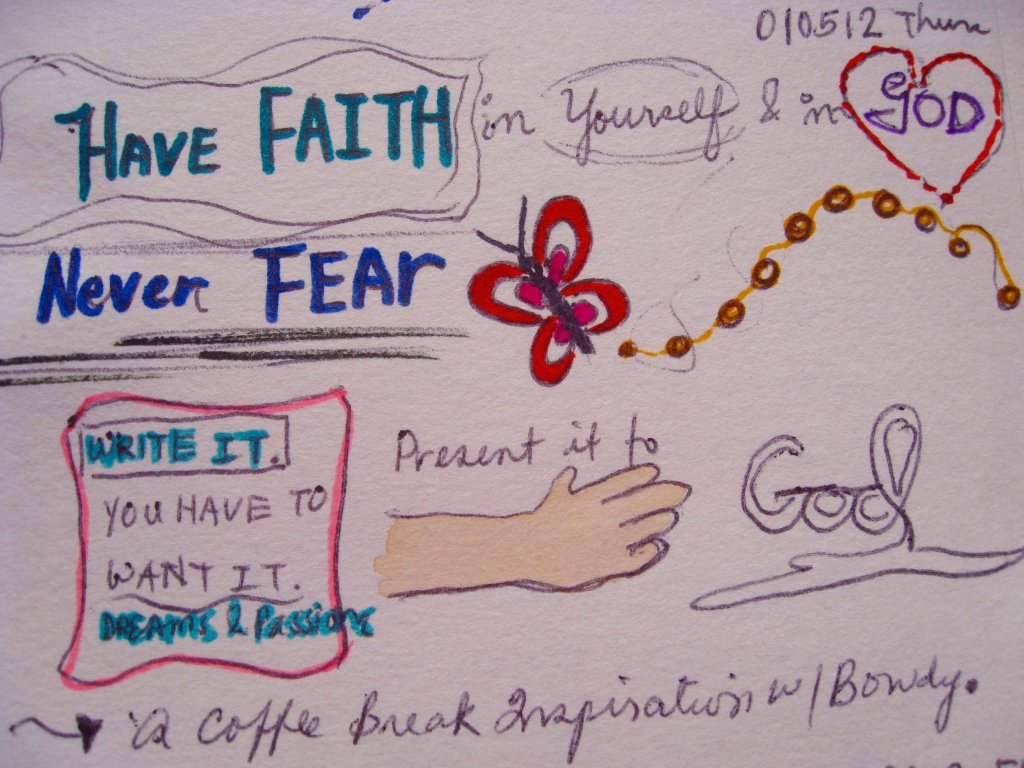 010512 Thurs
HAVE FAITH in Yourself & in GOD
Never FEAr
WRITE IT.
YOU HAVE TO
WANT IT.
DREAMS & Passions
Present it to
God
a Coffee Break Inspiration w/Bowdy.